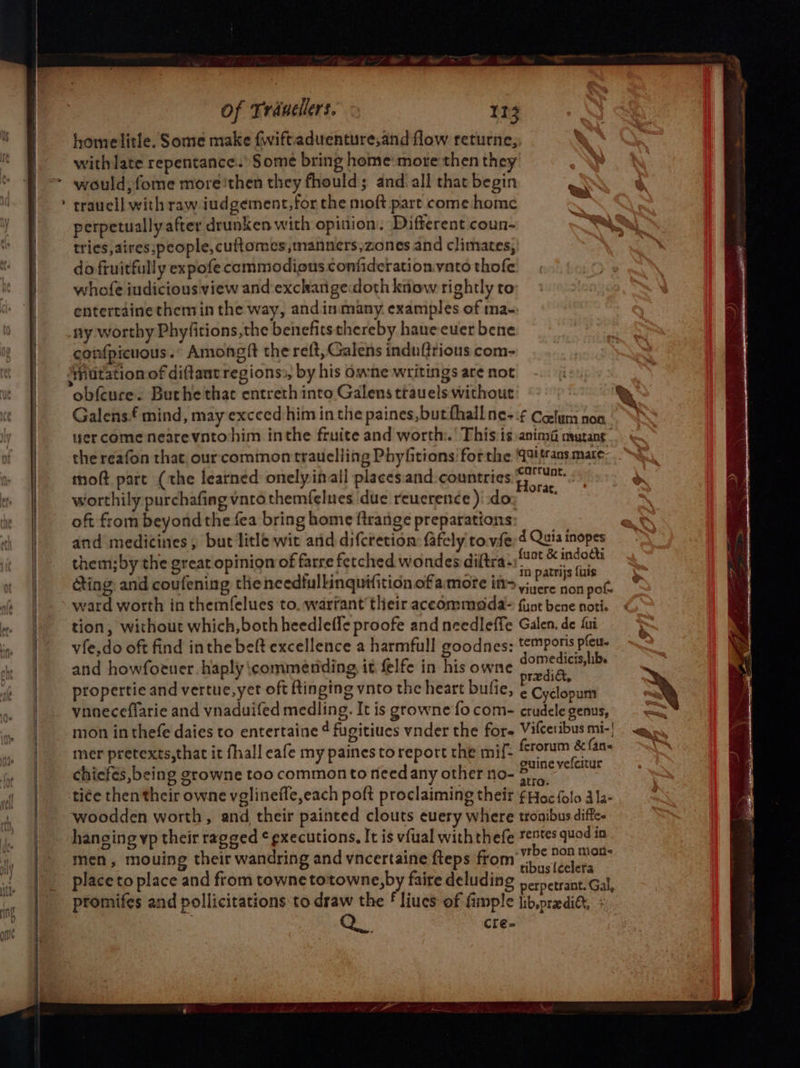 Of Trauellers. 113
home litle. Some make ſwift aduenture, and ſlow returne,
with late repentance. Some bring home more then they
would, ſome more then they ſhould; and all that begin
trauell with raw iudgement, for the moſt part come home
perpetually after drunken with opinion. Different coun-
tries, aires, people, cuſtomes, manners, zones and climates,
do fruitfully expoſe commodious conſideration vnto thoſe
whoſe iudicious view and exchange doth know rightly to
entertaine them in the way, and in many examples of ma-
ny worthy Phyſitions, the benefits thereby haue euer bene
conſpicuous. Amongſt the reſt, Galens induſtrious com-
mutation of diſtant regions, by his owne writings are not
obſcure. But he that entreth into Galens trauels without
Galens ᶜ mind, may exceed him in the paines, but ſhall ne-
uer come neare vnto him in the fruite and worth. This is
the reaſon that our common trauelling Phyſitions for the
moſt part (the learned onely in all places and countries
worthily purchaſing vnto themſelues due reuerence) do
oft from beyond the ſea bring home ſtrange preparations
and medicines, but litle wit and diſcretion ſafely to vſe
them; by the great opinion of farre fetched wondes diſtra-
cting and couſening the needfull inquiſition of a more in-
ward worth in themſelues to warrant their accommoda-
tion, without which, both heedleſſe proofe and needleſſe
vſe, do oft find in the beſt excellence a harmfull goodnes:
and howſoeuer haply commending it ſelfe in his owne
propertie and vertue, yet oft ſtinging vnto the heart buſie,
vnneceſſarie and vnaduiſed medling. It is growne ſo com-
mon in theſe daies to entertaine ᵈ fugitiues vnder the for-
mer pretexts, that it ſhall eaſe my paines to report the miſ-
chiefes, being growne too common to need any other no-
tice then their owne vglineſſe, each poſt proclaiming their
woodden worth, and their painted clouts euery where
hanging vp their ragged ᵉ executions. It is vſual with theſe
men, mouing their wandring and vncertaine ſteps from
place to place and from towne to towne, by faire deluding
promiſes and pollicitations to draw the ᶠ liues of ſimple
Q cre-
ᶜ Cœlum non
animū mutant
qui trans mare
currunt.
Horat.
d Quia inopes
ſunt & indocti
in patrijs ſuis
viuere non poſ-
ſunt bene noti.
Galen. de ſui
temporis pſeu-
domedicis, lib.
prædict.
e Cyclopum
crudele genus,
Viſceribus mi-
ſerorum & ſan-
guine veſcitur
atro.
f Hoc ſolo à la-
tronibus diffe-
rentes quod in
vrbe non mon-
tibus ſcelera
perpetrant. Gal.
lib. prædict.